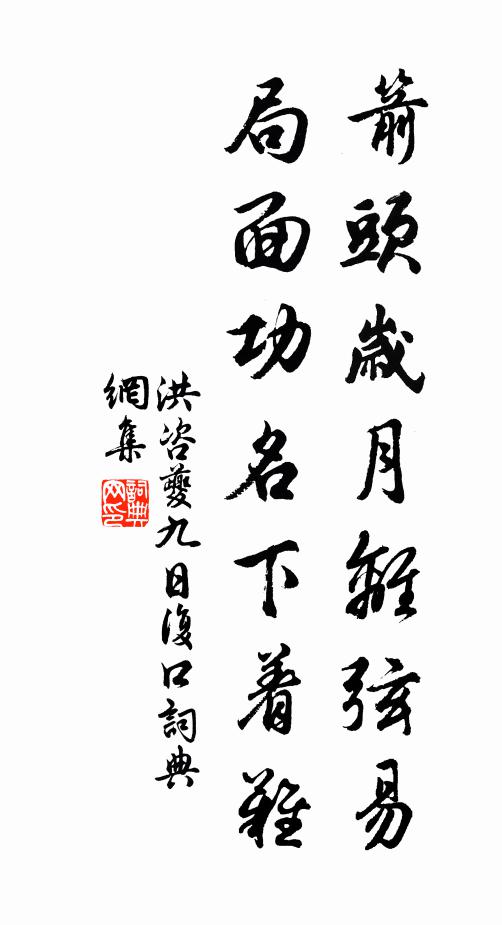 箭頭歲月離弦易
局面功名下着難
洪咨夔九日復口詞典
網集
詞典
网印